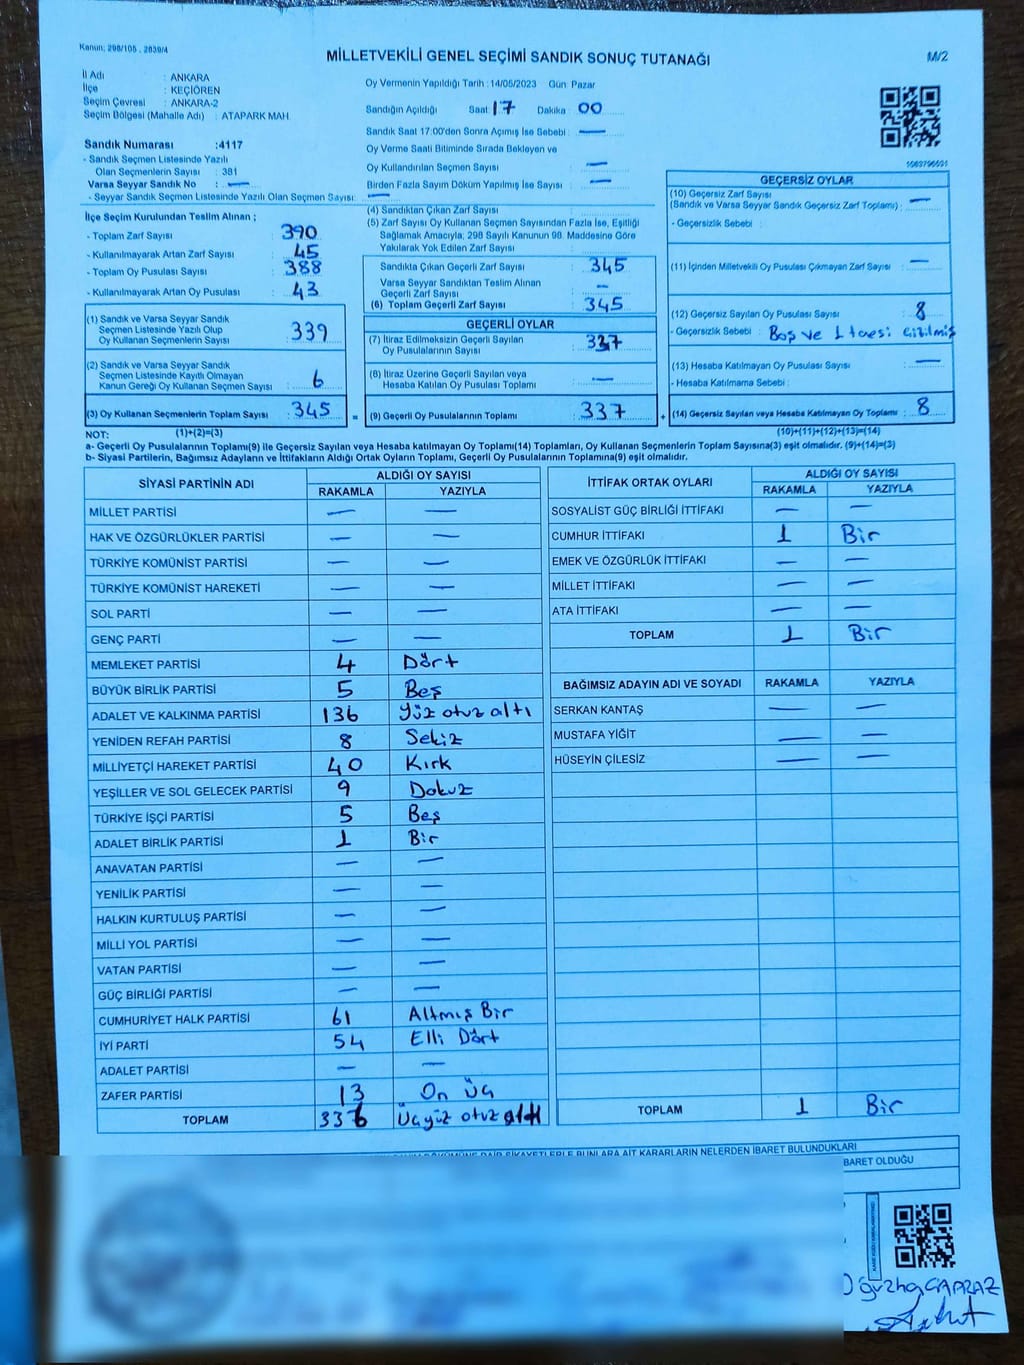 Kanun; 298/105 , 2839/4
MİLLETVEKİLİ GENEL SEÇİMİ SANDIK SONUÇ TUTANAĞI
M/2
İl Adı : ANKARA
İlçe : KEÇİÖREN
Seçim Çevresi : ANKARA-2
Seçim Bölgesi (Mahalle Adı) : ATAPARK MAH.
Sandık Numarası :4117
- Sandık Seçmen Listesinde Yazılı
Olan Seçmenlerin Sayısı : 381
Varsa Seyyar Sandık No : —
- Seyyar Sandık Seçmen Listesinde Yazılı Olan Seçmen Sayısı: —
Oy Vermenin Yapıldığı Tarih :14/05/2023 Gün Pazar
Sandığın Açıldığı Saat 17 Dakika 00
Sandık Saat 17:00'den Sonra Açımış İse Sebebi : —
Oy Verme Saati Bitiminde Sırada Bekleyen ve
Oy Kullandırılan Seçmen Sayısı : —
Birden Fazla Sayım Döküm Yapılmış İse Sayısı : —
İlçe Seçim Kurulundan Teslim Alınan ;
- Toplam Zarf Sayısı : 390
- Kullanılmayarak Artan Zarf Sayısı : 45
- Toplam Oy Pusulası Sayısı : 388
- Kullanılmayarak Artan Oy Pusulası : 43
(1) Sandık ve Varsa Seyyar Sandık
Seçmen Listesinde Yazılı Olup
Oy Kullanan Seçmenlerin Sayısı : 339
(2) Sandık ve Varsa Seyyar Sandık
Seçmen Listesinde Kayıtlı Olmayan
Kanun Gereği Oy Kullanan Seçmen Sayısı : 6
(3) Oy Kullanan Seçmenlerin Toplam Sayısı : 345 =
(4) Sandıktan Çıkan Zarf Sayısı :
(5) Zarf Sayısı Oy Kullanan Seçmen Sayısından Fazla İse, Eşitliği
Sağlamak Amacıyla, 298 Sayılı Kanunun 98. Maddesine Göre
Yakılarak Yok Edilen Zarf Sayısı :
Sandıkta Çıkan Geçerli Zarf Sayısı : 345
Varsa Seyyar Sandıktan Teslim Alınan
Geçerli Zarf Sayısı : —
(6) Toplam Geçerli Zarf Sayısı : 345
GEÇERLİ OYLAR
(7) İtiraz Edilmeksizin Geçerli Sayılan
Oy Pusulalarının Sayısı : 337
(8) İtiraz Üzerine Geçerli Sayılan veya
Hesaba Katılan Oy Pusulası Toplamı : —
(9) Geçerli Oy Pusulalarının Toplamı : 337 +
1063796591
GEÇERSİZ OYLAR
(10) Geçersiz Zarf Sayısı
(Sandık ve Varsa Seyyar Sandık Geçersiz Zarf Toplamı) : —
- Geçersizlik Sebebi :
(11) İçinden Milletvekili Oy Pusulası Çıkmayan Zarf Sayısı : —
(12) Geçersiz Sayılan Oy Pusulası Sayısı : 8
- Geçersizlik Sebebi : Boş ve 1 tanesi çizilmiş
(13) Hesaba Katılmayan Oy Pusulası Sayısı : —
- Hesaba Katılmama Sebebi :
(14) Geçersiz Sayılan veya Hesaba Katılmayan Oy Toplamı : 8
NOT: (1)+(2)=(3) (10)+(11)+(12)+(13)=(14)
a- Geçerli Oy Pusulalarının Toplamı(9) ile Geçersiz Sayılan veya Hesaba katılmayan Oy Toplamı(14) Toplamları, Oy Kullanan Seçmenlerin Toplam Sayısına(3) eşit olmalıdır. (9)+(14)=(3)
b- Siyasi Partilerin, Bağımsız Adayların ve İttifakların Aldığı Ortak Oyların Toplamı, Geçerli Oy Pusulalarının Toplamına(9) eşit olmalıdır.
SİYASİ PARTİNİN ADI ALDIĞI OY SAYISI
RAKAMLA YAZIYLA
MİLLET PARTİSİ — —
HAK VE ÖZGÜRLÜKLER PARTİSİ — —
TÜRKİYE KOMÜNİST PARTİSİ — —
TÜRKİYE KOMÜNİST HAREKETİ — —
SOL PARTİ — —
GENÇ PARTİ — —
MEMLEKET PARTİSİ 4 Dört
BÜYÜK BİRLİK PARTİSİ 5 Beş
ADALET VE KALKINMA PARTİSİ 136 Yüz otuz altı
YENİDEN REFAH PARTİSİ 8 Sekiz
MİLLİYETÇİ HAREKET PARTİSİ 40 Kırk
YEŞİLLER VE SOL GELECEK PARTİSİ 9 Dokuz
TÜRKİYE İŞÇİ PARTİSİ 5 Beş
ADALET BİRLİK PARTİSİ 1 Bir
ANAVATAN PARTİSİ — —
YENİLİK PARTİSİ — —
HALKIN KURTULUŞ PARTİSİ — —
MİLLİ YOL PARTİSİ — —
VATAN PARTİSİ — —
GÜÇ BİRLİĞİ PARTİSİ — —
CUMHURİYET HALK PARTİSİ 61 Altmış Bir
İYİ PARTİ 54 Elli Dört
ADALET PARTİSİ — —
ZAFER PARTİSİ 13 On Üç
TOPLAM 336 Üçyüz otuz altı
İTTİFAK ORTAK OYLARI ALDIĞI OY SAYISI
RAKAMLA YAZIYLA
SOSYALİST GÜÇ BİRLİĞİ İTTİFAKI — —
CUMHUR İTTİFAKI 1 Bir
EMEK VE ÖZGÜRLÜK İTTİFAKI — —
MİLLET İTTİFAKI — —
ATA İTTİFAKI — —
TOPLAM 1 Bir
BAĞIMSIZ ADAYIN ADI VE SOYADI RAKAMLA YAZIYLA
SERKAN KANTAŞ — —
MUSTAFA YİĞİT — —
HÜSEYİN ÇİLESİZ — —
TOPLAM 1 Bir
DÖKÜMÜNE DAİR ŞİKAYETLERLE BUNLARA AİT KARARLARIN NELERDEN İBARET BULUNDUKLARI
BARET OLDUĞU
Oğuzhan ÇAPRAZ